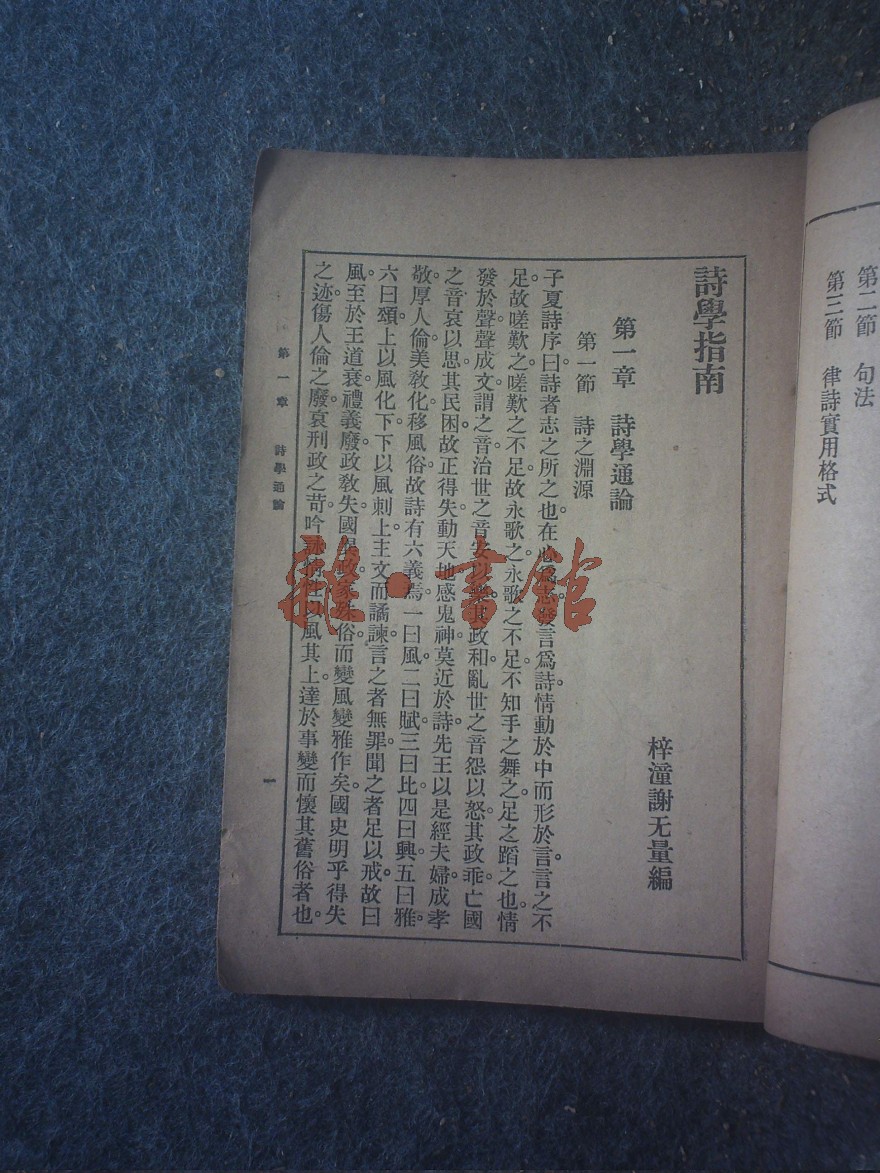 第二節 句法
第三節 律詩實用格式
詩學指南
梓潼謝无量編
第一章 詩學通論
第一節 詩之淵源
子夏詩序曰詩者志之所之也在心爲志發言爲詩情動於中而形於言言之不
足故嗟歎之嗟歎之不足故永歌之永歌之不足不知手之舞之足之蹈之也情
發於聲聲成文謂之音治世之音安以樂其政和亂世之音怨以怒其政乖亡國
之音哀以思其民困故正得失動天地感鬼神莫近於詩先王以是經夫婦成孝
敬厚人倫美敎化移風俗故詩有六義焉一曰風二曰賦三曰比四曰興五曰雅
六曰頌上以風化下下以風刺上主文而譎諫言之者無罪聞之者足以戒故曰
風至於王道衰禮義廢政敎失國異政家殊俗而變風變雅作矣國史明乎得失
之迹傷人倫之廢哀刑政之苛吟詠情性以風其上達於事變而懷其舊俗者也。
第一章 詩學通論
一
雜·書館